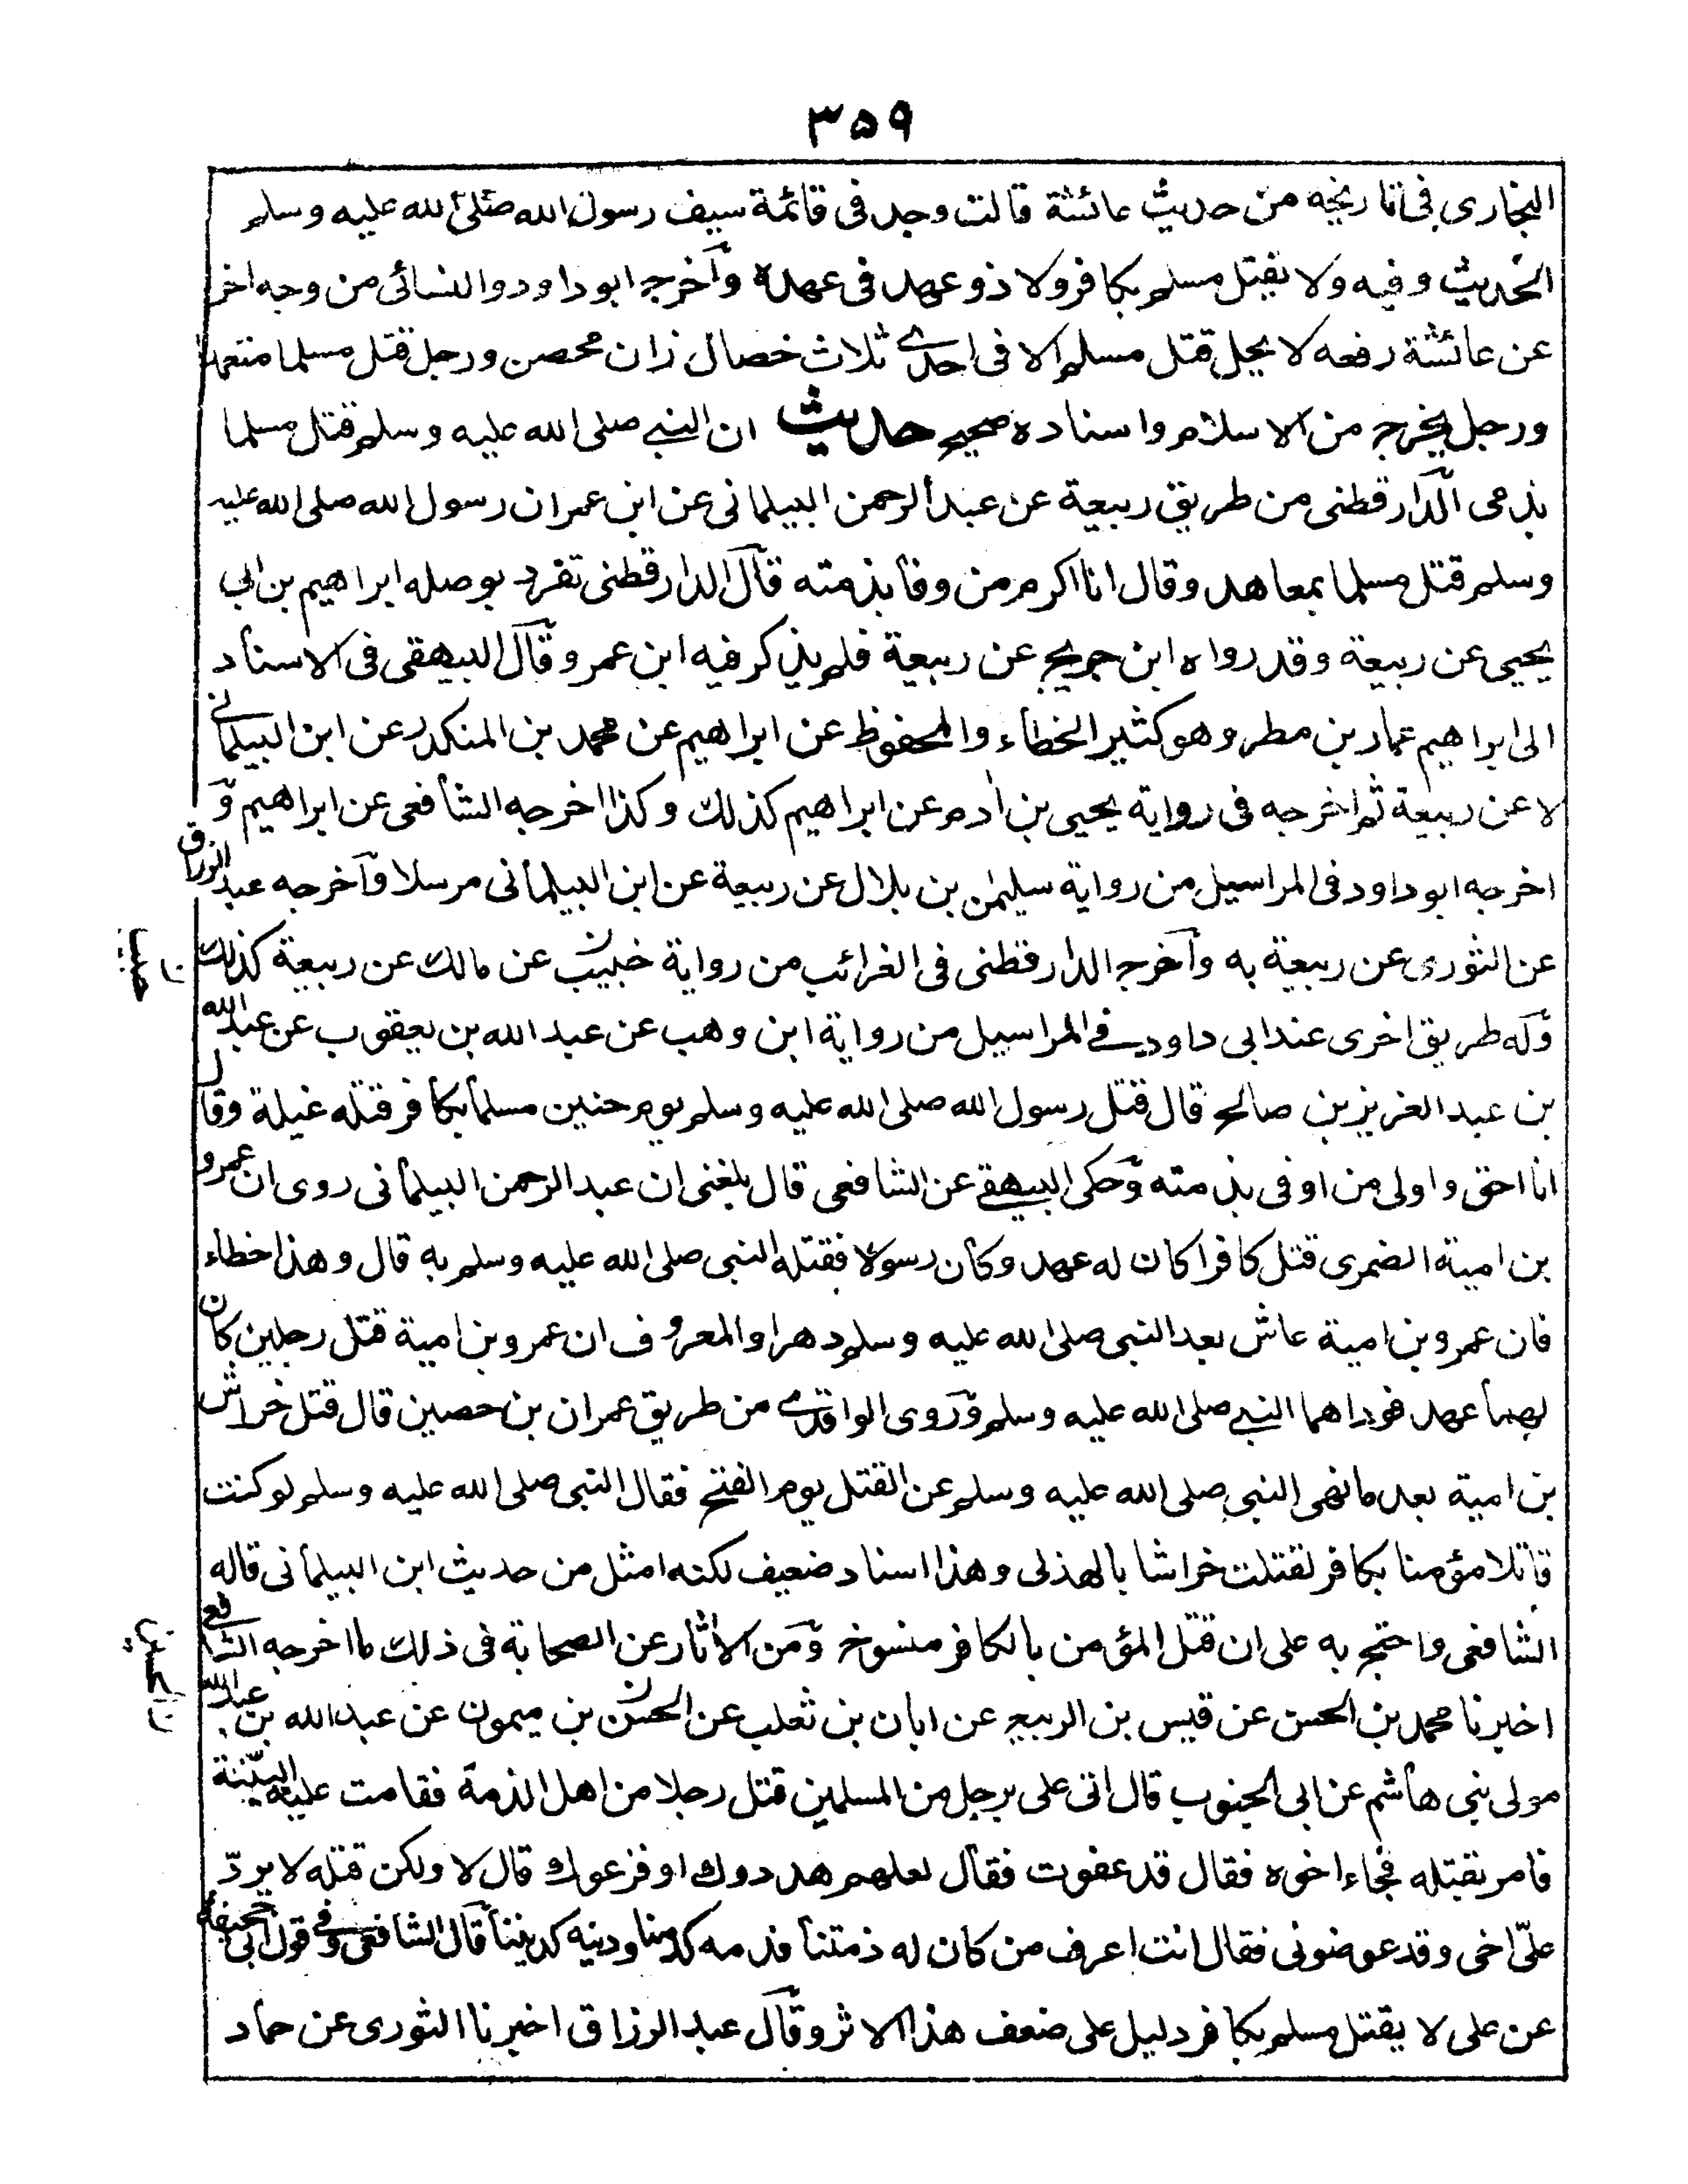 ٣٥٩
البخارى فى تاريخه من حديث عائشة قالت وجد فى قائمة سيف رسول الله صلى الله عليه وسلم
الحديث وفيه ولا يقتل مسلم بكافر ولا ذو عهد فى عهده وأخرجه ابو داود والنسائى من وجه اخر
عن عائشة رفعه لا يحل قتل مسلم الا فى احدى ثلاث خصال زان محصن ورجل قتل مسلما متعمدا
ورجل يخرج من الاسلام واسناده صحيح حديث ان النبى صلى الله عليه وسلم قتل مسلما
بذمى الدارقطنى من طريق ربيعة عن عبد الرحمن البيلمانى عن ابن عمر ان رسول الله صلى الله عليه
وسلم قتل مسلما بمعاهد وقال انا اكرم من وفا بذمته قال الدارقطنى تفرد بوصله ابراهيم بن ابى
يحيى عن ربيعة وقد رواه ابن جريج عن ربيعة فلم يذكر فيه ابن عمر وقال البيهقى فى الاسناد
الى ابراهيم عمار بن مطر وهو كثير الخطاء والمحفوظ عن ابراهيم عن محمد بن المنكدر عن ابن البيلمانى
لا عن ربيعة ثم اخرجه فى رواية يحيى بن ادم عن ابراهيم كذلك وكذا اخرجه الشافعى عن ابراهيم و
اخرجه ابو داود فى المراسيل من رواية سليمن بن بلال عن ربيعة عن ابن البيلمانى مرسلا وأخرجه عبد الرزاق
عن الثورى عن ربيعة به وأخرجه الدارقطنى فى الغرائب من رواية خبيب عن مالك عن ربيعة كذلك
ن حبيب
وله طريق اخرى عند ابى داود فى المراسيل من رواية ابن وهب عن عبد الله بن يعقوب عن عبد الله
بن عبد العزيز بن صالح قال قتل رسول الله صلى الله عليه وسلم يوم حنين مسلما بكافر قتله غيلة وقال
انا احق واولى من اوفى بذمته وحكى البيهقى عن الشافعى قال بلغنى ان عبد الرحمن البيلمانى روى ان عمرو
بن امية الضمرى قتل كافرا كان له عهد وكان رسولا فقتله النبى صلى الله عليه وسلم به قال وهذا خطاء
فان عمرو بن امية عاش بعد النبى صلى الله عليه وسلم دهرا والمعروف ان عمرو بن امية قتل رجلين كان
لهما عهد فوداهما النبى صلى الله عليه وسلم وروى الواقدى من طريق عمران بن حصين قال قتل خراش
بن امية بعد ما نهى النبى صلى الله عليه وسلم عن القتل يوم الفتح فقال النبى صلى الله عليه وسلم لو كنت
قاتلا مؤمنا بكافر لقتلت خراشا بالهذلى وهذا اسناد ضعيف لكنه امثل من حديث ابن البيلمانى قاله
الشافعى واحتج به على ان قتل المؤمن بالكافر منسوخ ومن الاثار عن الصحابة فى ذلك ما اخرجه الشافعى
اخبرنا محمد بن الحسن عن قيس بن الربيع عن ابان بن ثعلب عن الحسن بن ميمون عن عبد الله بن عبد الله
مولى بنى هاشم عن ابى الجنوب قال اتى على برجل من المسلمين قتل رجلا من اهل الذمة فقامت عليه البيّنة
فامر بقتله فجاء اخوه فقال قد عفوت فقال لعلهم هددوك او فزعوك قال لا ولكن قتله لا يردّ
علىّ اخى وقد عوضونى فقال انت اعرف من كان له ذمتنا فدمه كدمنا ودينه كديننا قال الشافعى وفى قول ابى جحيفة
عن على لا يقتل مسلم بكافر دليل على ضعف هذا الاثر وقال عبد الرزاق اخبرنا الثورى عن حماد